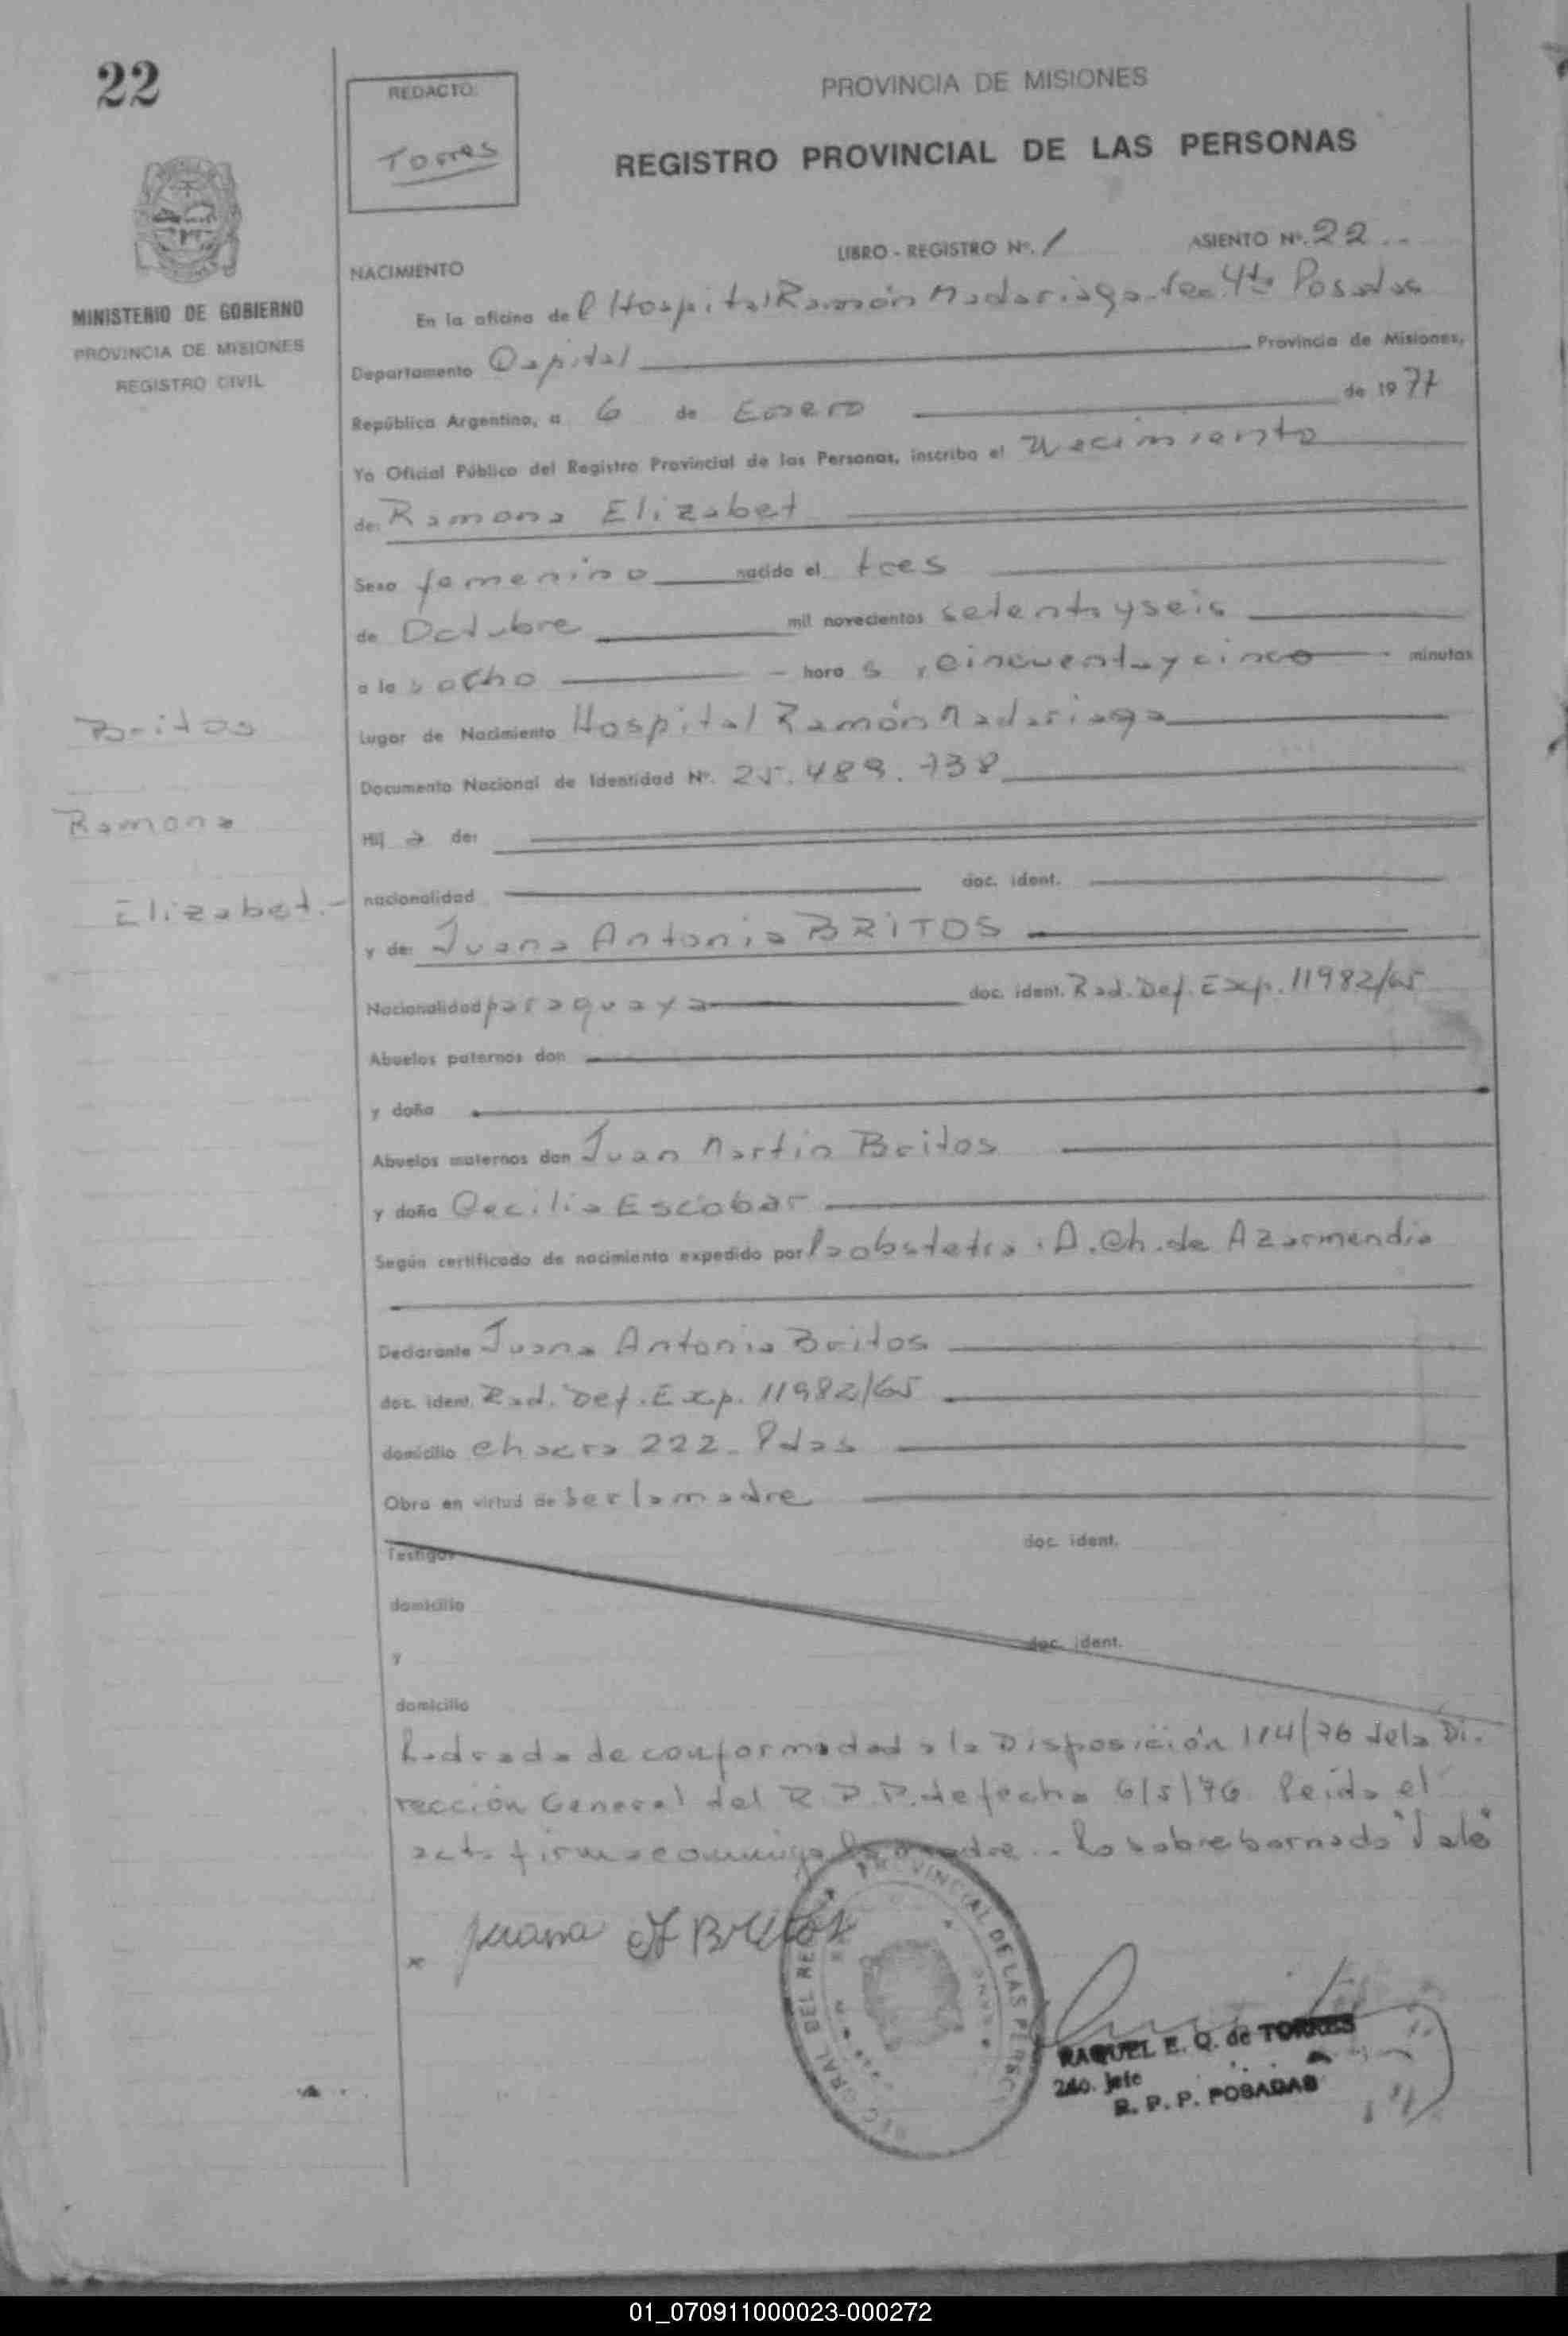 22
REDACTO:
Torres
PROVINCIA DE MISIONES
REGISTRO PROVINCIAL DE LAS PERSONAS
MINISTERIO DE GOBIERNO
PROVINCIA DE MISIONES
REGISTRO CIVIL
LIBRO - REGISTRO Nº. 1 ASIENTO Nº. 22
NACIMIENTO
En la oficina del Hospital Ramón Madariaga Sec. 4ta Posadas
Departamento Capital Provincia de Misiones,
República Argentina, a 6 de Enero de 1977
Yo Oficial Público del Registro Provincial de las Personas, inscribo el Nacimiento
de: Ramona Elizabet
Sexo femenino nacido el tres
de Octubre mil novecientos setenta y seis
a las ocho horas, cincuenta y cinco minutos
Britos
Lugar de Nacimiento Hospital Ramón Madariaga
Documento Nacional de Identidad Nº. 25.489.738
Ramona
Hij a de:
Elizabet.-
nacionalidad doc. ident.
y de: Juana Antonia BRITOS
Nacionalidad paraguaya doc. ident. Rad. Def. Exp. 11982/65
Abuelos paternos don
y doña
Abuelos maternos don Juan Martin Britos
y doña Cecilia Escobar
Según certificado de nacimiento expedido por la obstetra. A. Ch. de Azarmendia
Declarante Juana Antonia Britos
doc. ident. Rad. Def. Exp. 11982/65
domicilio Chacra 222 - Pdas
Obra en virtud de ser la madre
Testigos doc. ident.
domicilio
y doc. ident.
domicilio
de conformidad a la Disposición 114/76 de la Di-
rección General del R.P.P. de fecha 6/5/76. Leída el
acta firma conmigo la madre.- Lo sobreborrado "Vale"
x Juana A Britos
PROVINCIAL DE LAS
RAQUEL E. Q. de TORRES
2do. Jefe
R. P. P. POSADAS
01_070911000023-000272